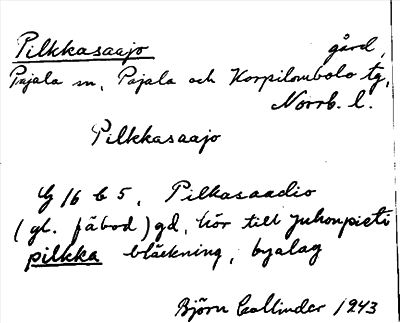 Pilkkasaajo gård,
Pajala sn, Pajala och Korpilombolo tg,
Norrb. l.
Pilkkasaajo
G 16 b 5, Pilkasaadio
(gl. fäbod) gd, hör till Juhonpieti
pilkka bläckning, byalag
Björn Collinder 1943